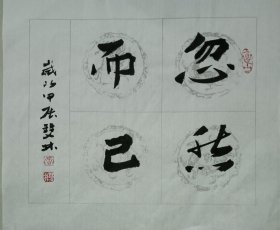 忽然
而已
歲次甲辰